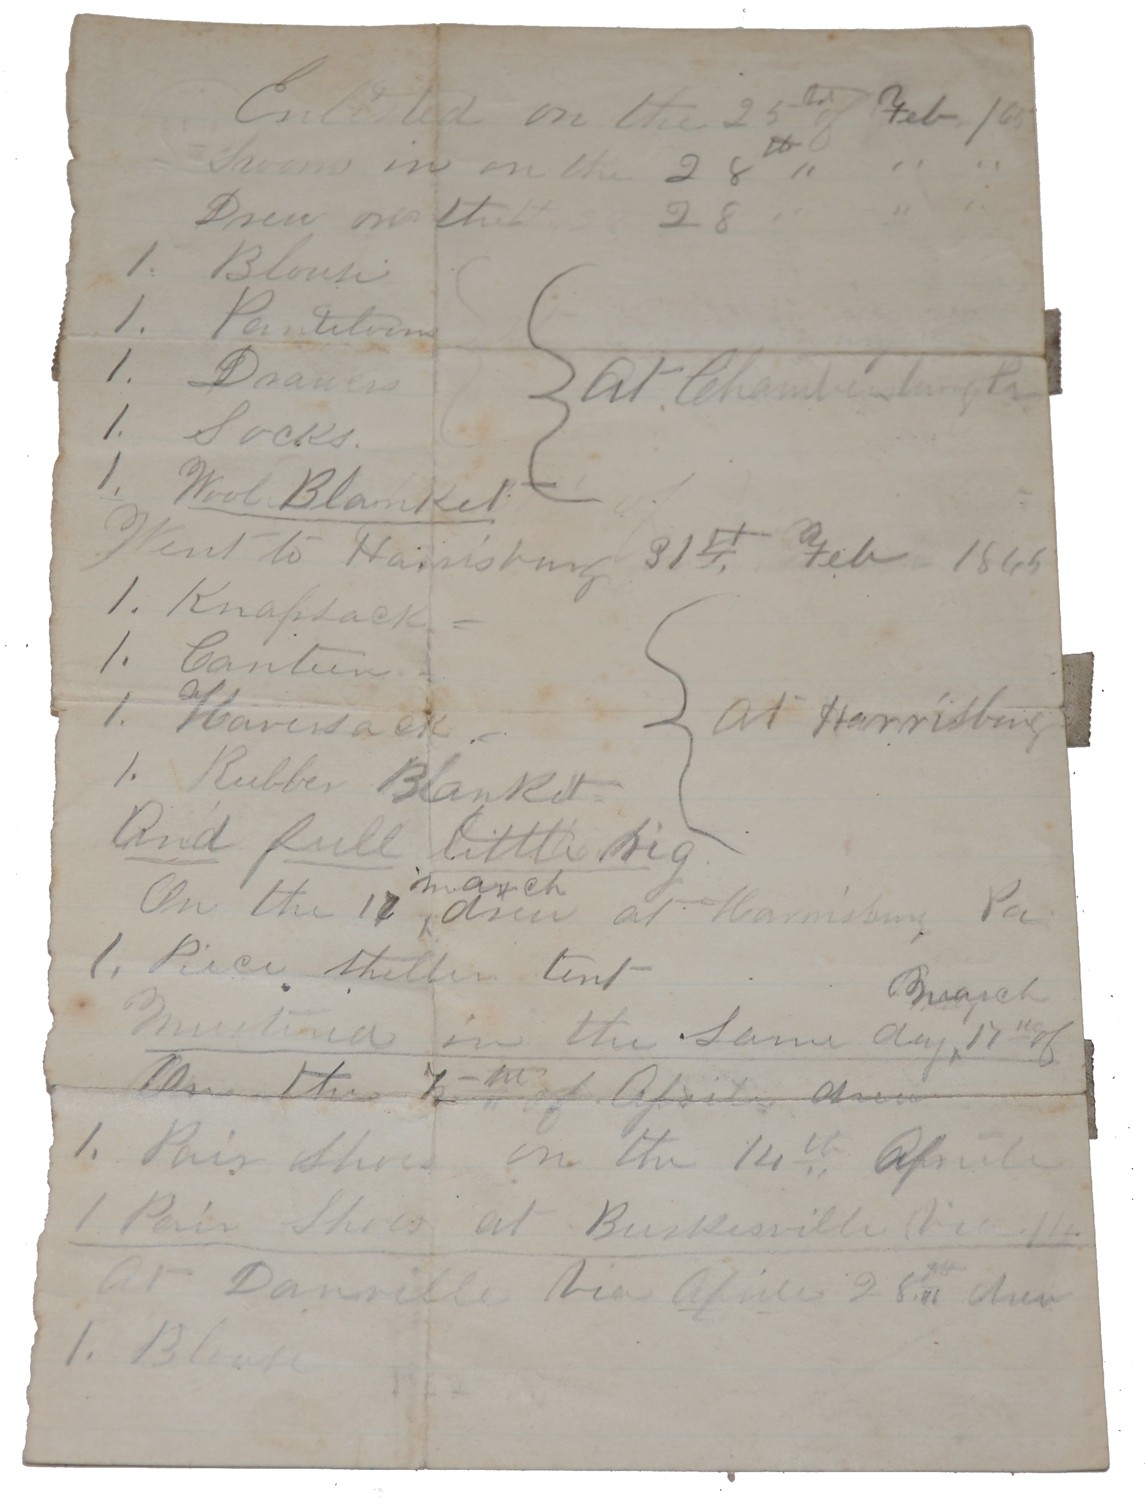 Enlisted on the 25th of Feb. /65
Swoorn in on the 28th " " "
Drew on the 28 " " "
1. Blouse
1. Pantiloons
1. Drawers } At Chambersburg Pa
1. Socks.
1. Wool Blanket
Went to Harrisburg 31st. Feb - 1865
1. Knapsack =
1. Canteen -
1. Haversack - } at Harrisburg
1. Rubber Blanket =
And full little rig
On the 17 march drew at Harrisburg Pa
1. Piece shelter tent
Mustered in the same day, 17th of March
On the 7th of Aprile drew
1. Pair Shoes on the 14th. Aprile
1 Pair Shoes at Burkesville Via /14.
At Danville Via Aprile 28th drew
1. Blouse